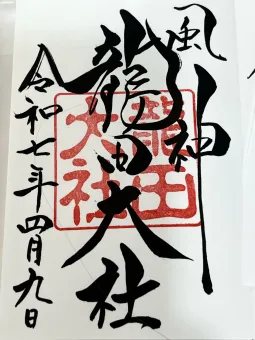 風神
龍田大社
龍田大社
令和七年四月九日